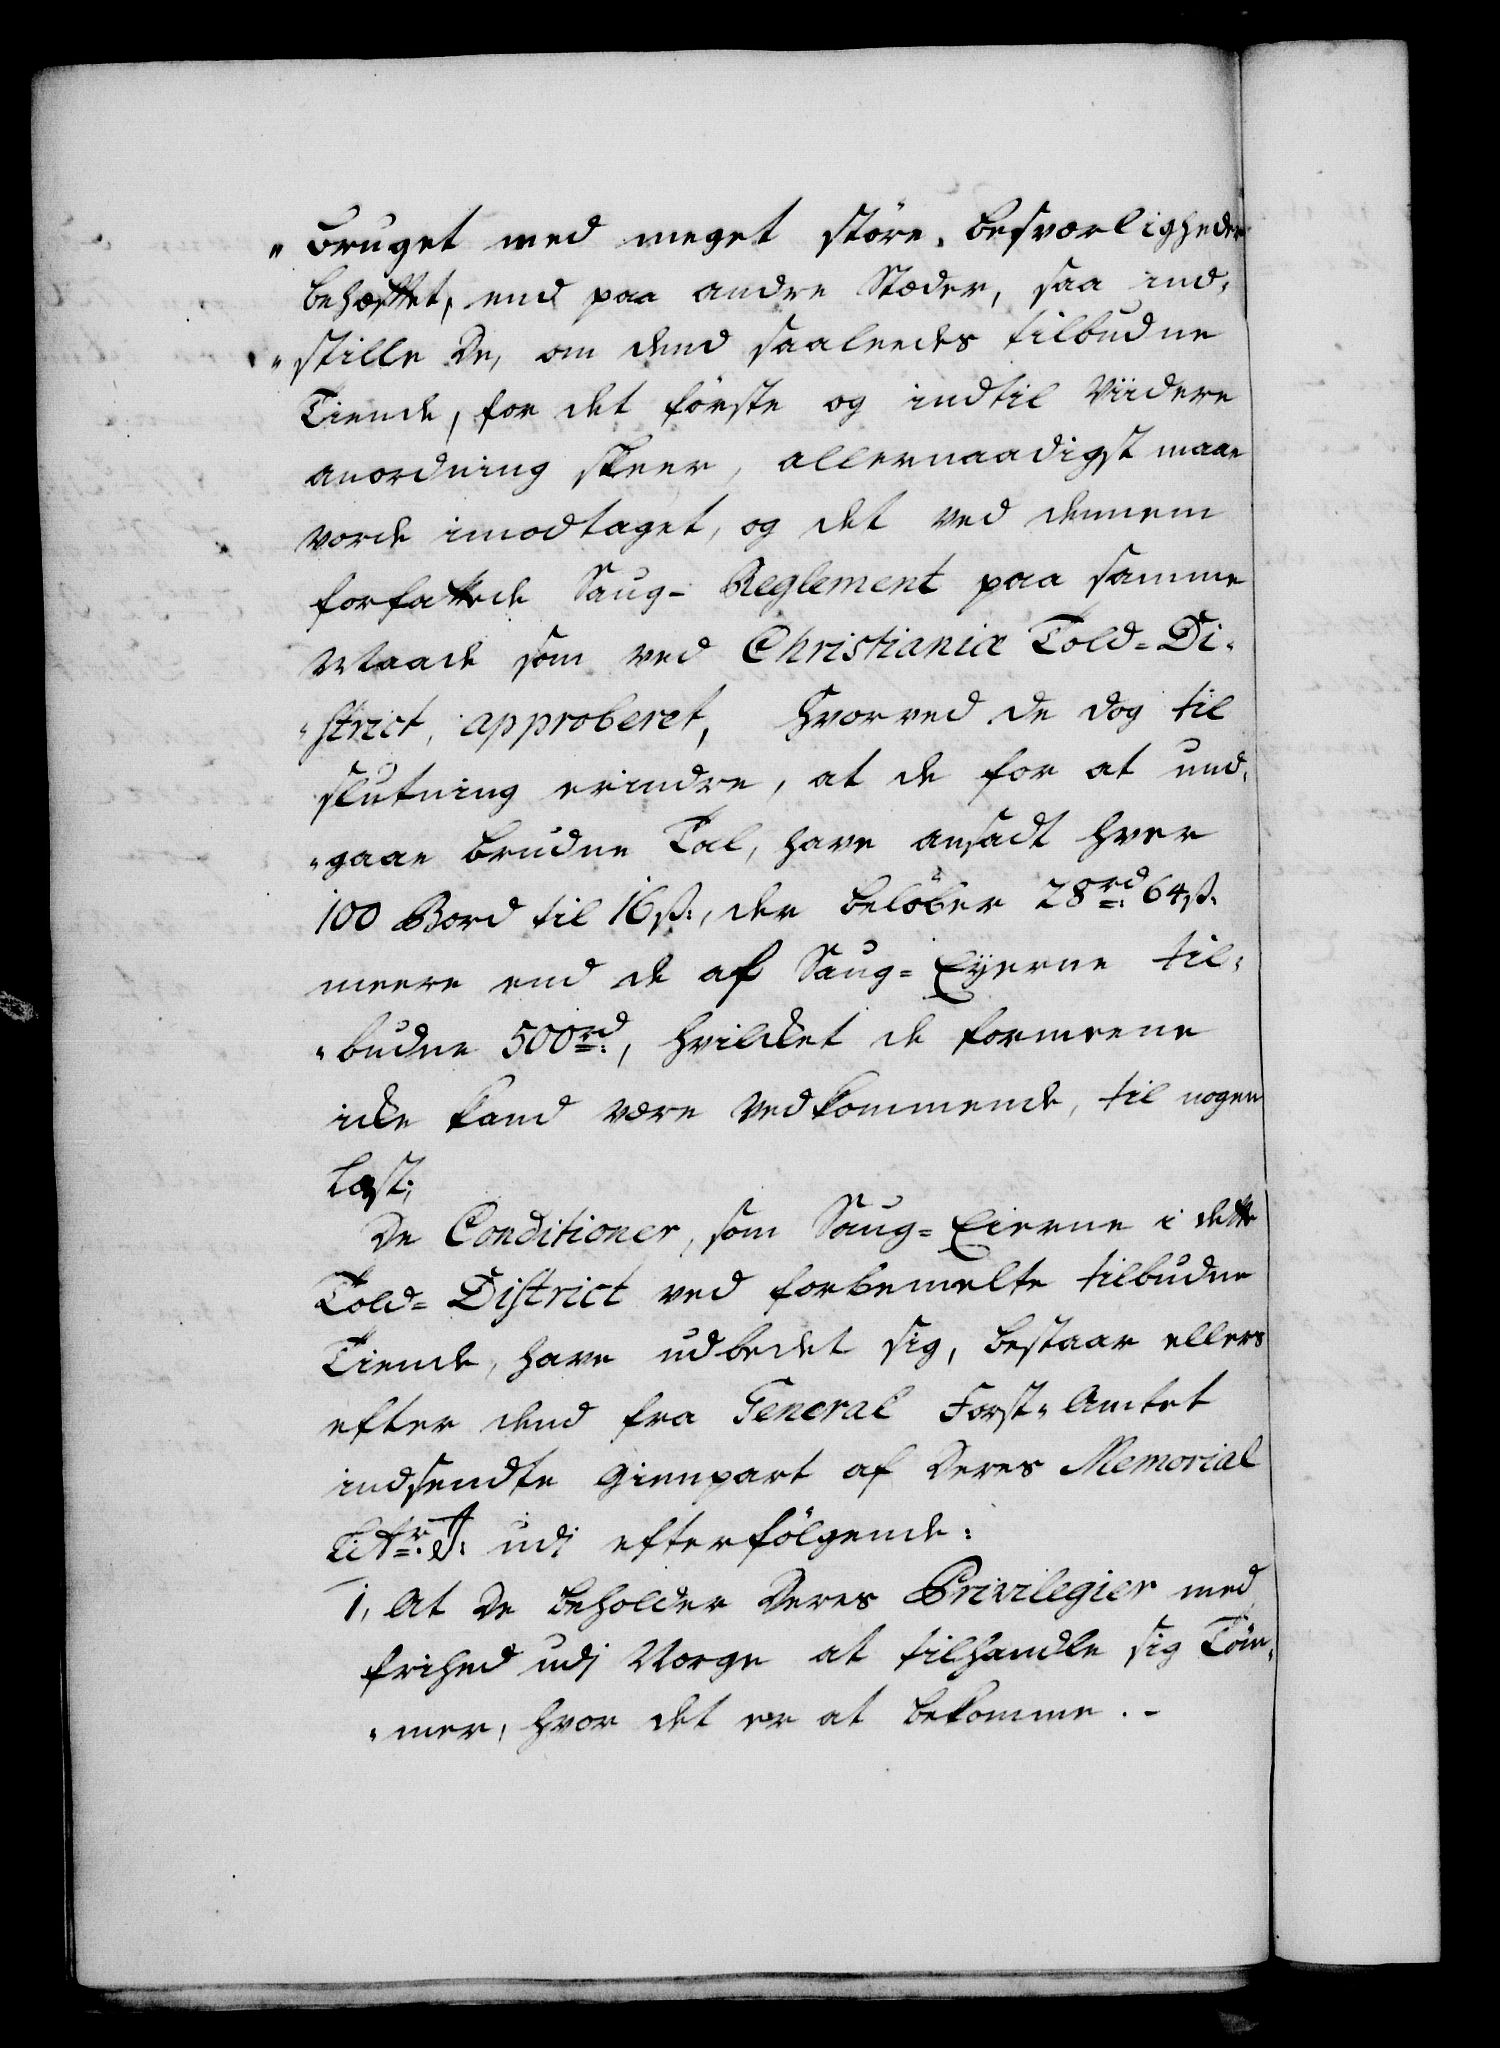 "Bruget med meget störe, besværligheder
behæfftet, end paa andre Stæder, saa ind¬
"stille De, om dend saaleedes tilbudne
Tiende, for det förste og indtil Viidere
anordning skeer, allernaadigst maae
vorde imodtaget, og det ved dennem
forfattede Saug- Reglement paa samme
Maade som ved Christianiæ Told= Di¬
"strict, approberet, hvorved de dog til
slutning erindre, at de for at und¬
"gaae brudne Tal, have ansadt hver
100 Bord til 16 ß:, der belöber 28 rd: 64 ß:
meere end de af Saug= Eyerne til¬
"budne 500 rd:, hvilcket de formeene
icke kand være Vedkommende, til nogen
Last;
De Conditioner, som Saug= Eierne i dette
Told= District ved forbemelte tilbudne
Tiende, have udbedet sig, bestaar ellers
efter dend fra General Forst= Amtet
indsendte Gienpart af Deres Memorial
Littr: J: udi efterfölgende:
1, At De beholder Deres Privilegier med
frihed udi Norge at tilhandle sig Töm¬
"mer, hvor det er at bekomme.-